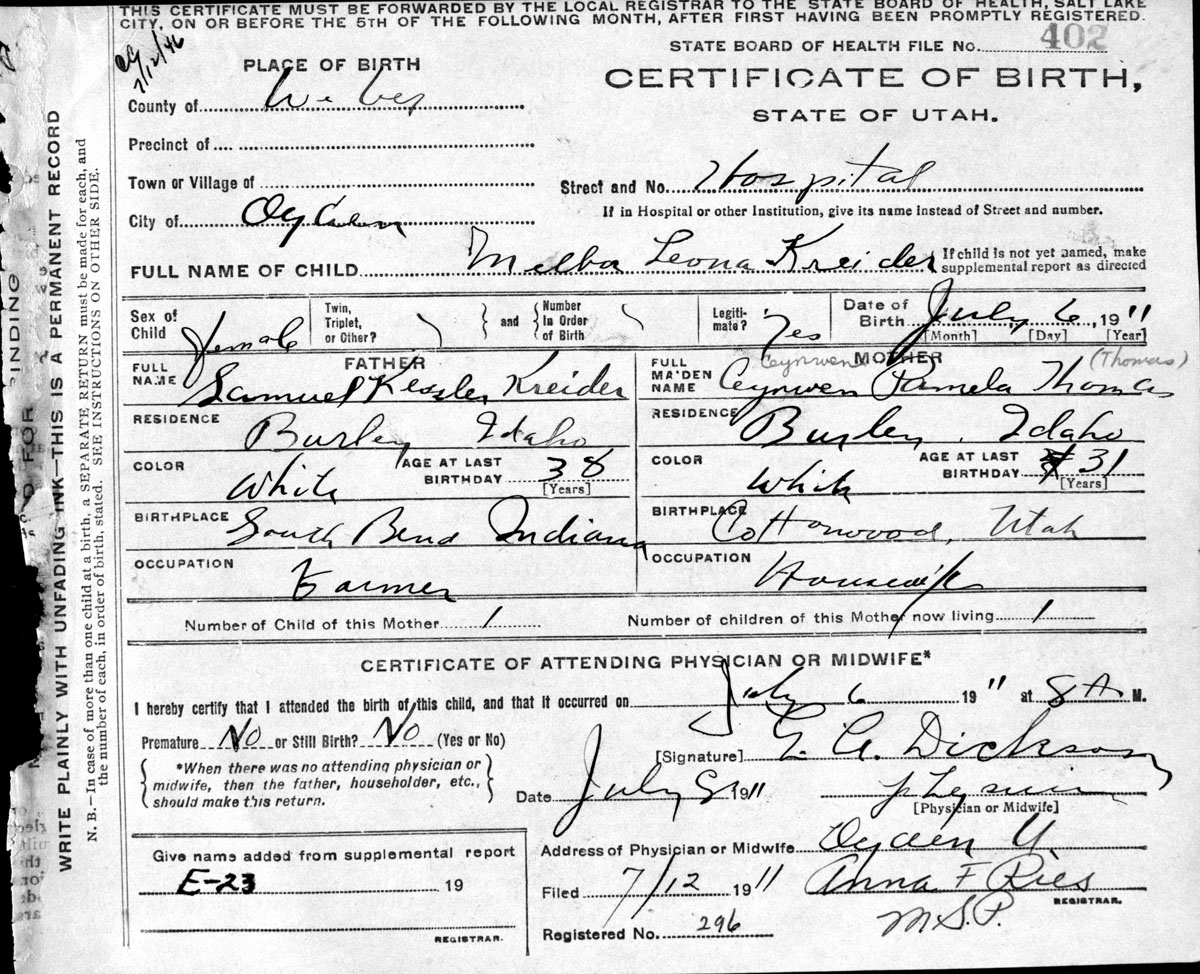 THIS CERTIFICATE MUST BE FORWARDED BY THE LOCAL REGISTRAR TO THE STATE BOARD OF HEALTH, SALT LAKE
CITY, ON OR BEFORE THE 5TH OF THE FOLLOWING MONTH, AFTER FIRST HAVING BEEN PROMPTLY REGISTERED.
7/12/46
STATE BOARD OF HEALTH FILE No. 402
PLACE OF BIRTH
CERTIFICATE OF BIRTH,
STATE OF UTAH.
County of Weber
Precinct of
Town or Village of
Street and No. Hospital
City of Ogden
If in Hospital or other Institution, give its name instead of Street and number.
FULL NAME OF CHILD Melba Leona Kreider If child is not yet named, make
supplemental report as directed
Sex of Child female Twin, Triplet, or Other? and Number In Order of Birth Legiti-mate? Yes Date of Birth July 6, 1911
[Month] [Day] [Year]
FATHER
Ceynwen MOTHER (Thomas)
FULL NAME Samuel Kessler Kreider
FULL MAIDEN NAME Ceynwen Pamela Thomas
RESIDENCE Burley Idaho
RESIDENCE Burley, Idaho
COLOR White AGE AT LAST BIRTHDAY 38 [Years]
COLOR White AGE AT LAST BIRTHDAY 31 [Years]
BIRTHPLACE South Bend Indiana
BIRTHPLACE Cottonwood, Utah
OCCUPATION Farmer
OCCUPATION Housewife
Number of Child of this Mother 1 Number of children of this Mother now living 1
CERTIFICATE OF ATTENDING PHYSICIAN OR MIDWIFE*
I hereby certify that I attended the birth of this child, and that it occurred on July 6 1911 at 8 A. M.
Premature No or Still Birth? No (Yes or No)
[Signature] Dickson
*When there was no attending physician or
midwife, then the father, householder, etc.,
should make this return.
Date July 8 1911
[Physician or Midwife]
Address of Physician or Midwife Ogden U.
Give name added from supplemental report
E-23 19
REGISTRAR.
Filed 7/12 1911 Anna F Ries
REGISTRAR.
M.S.P.
Registered No. 296
WRITE PLAINLY WITH UNFADING INK—THIS IS A PERMANENT RECORD
N. B.—In case of more than one child at a birth, a SEPARATE RETURN must be made for each, and
the number of each, in order of birth, stated. SEE INSTRUCTIONS ON OTHER SIDE.